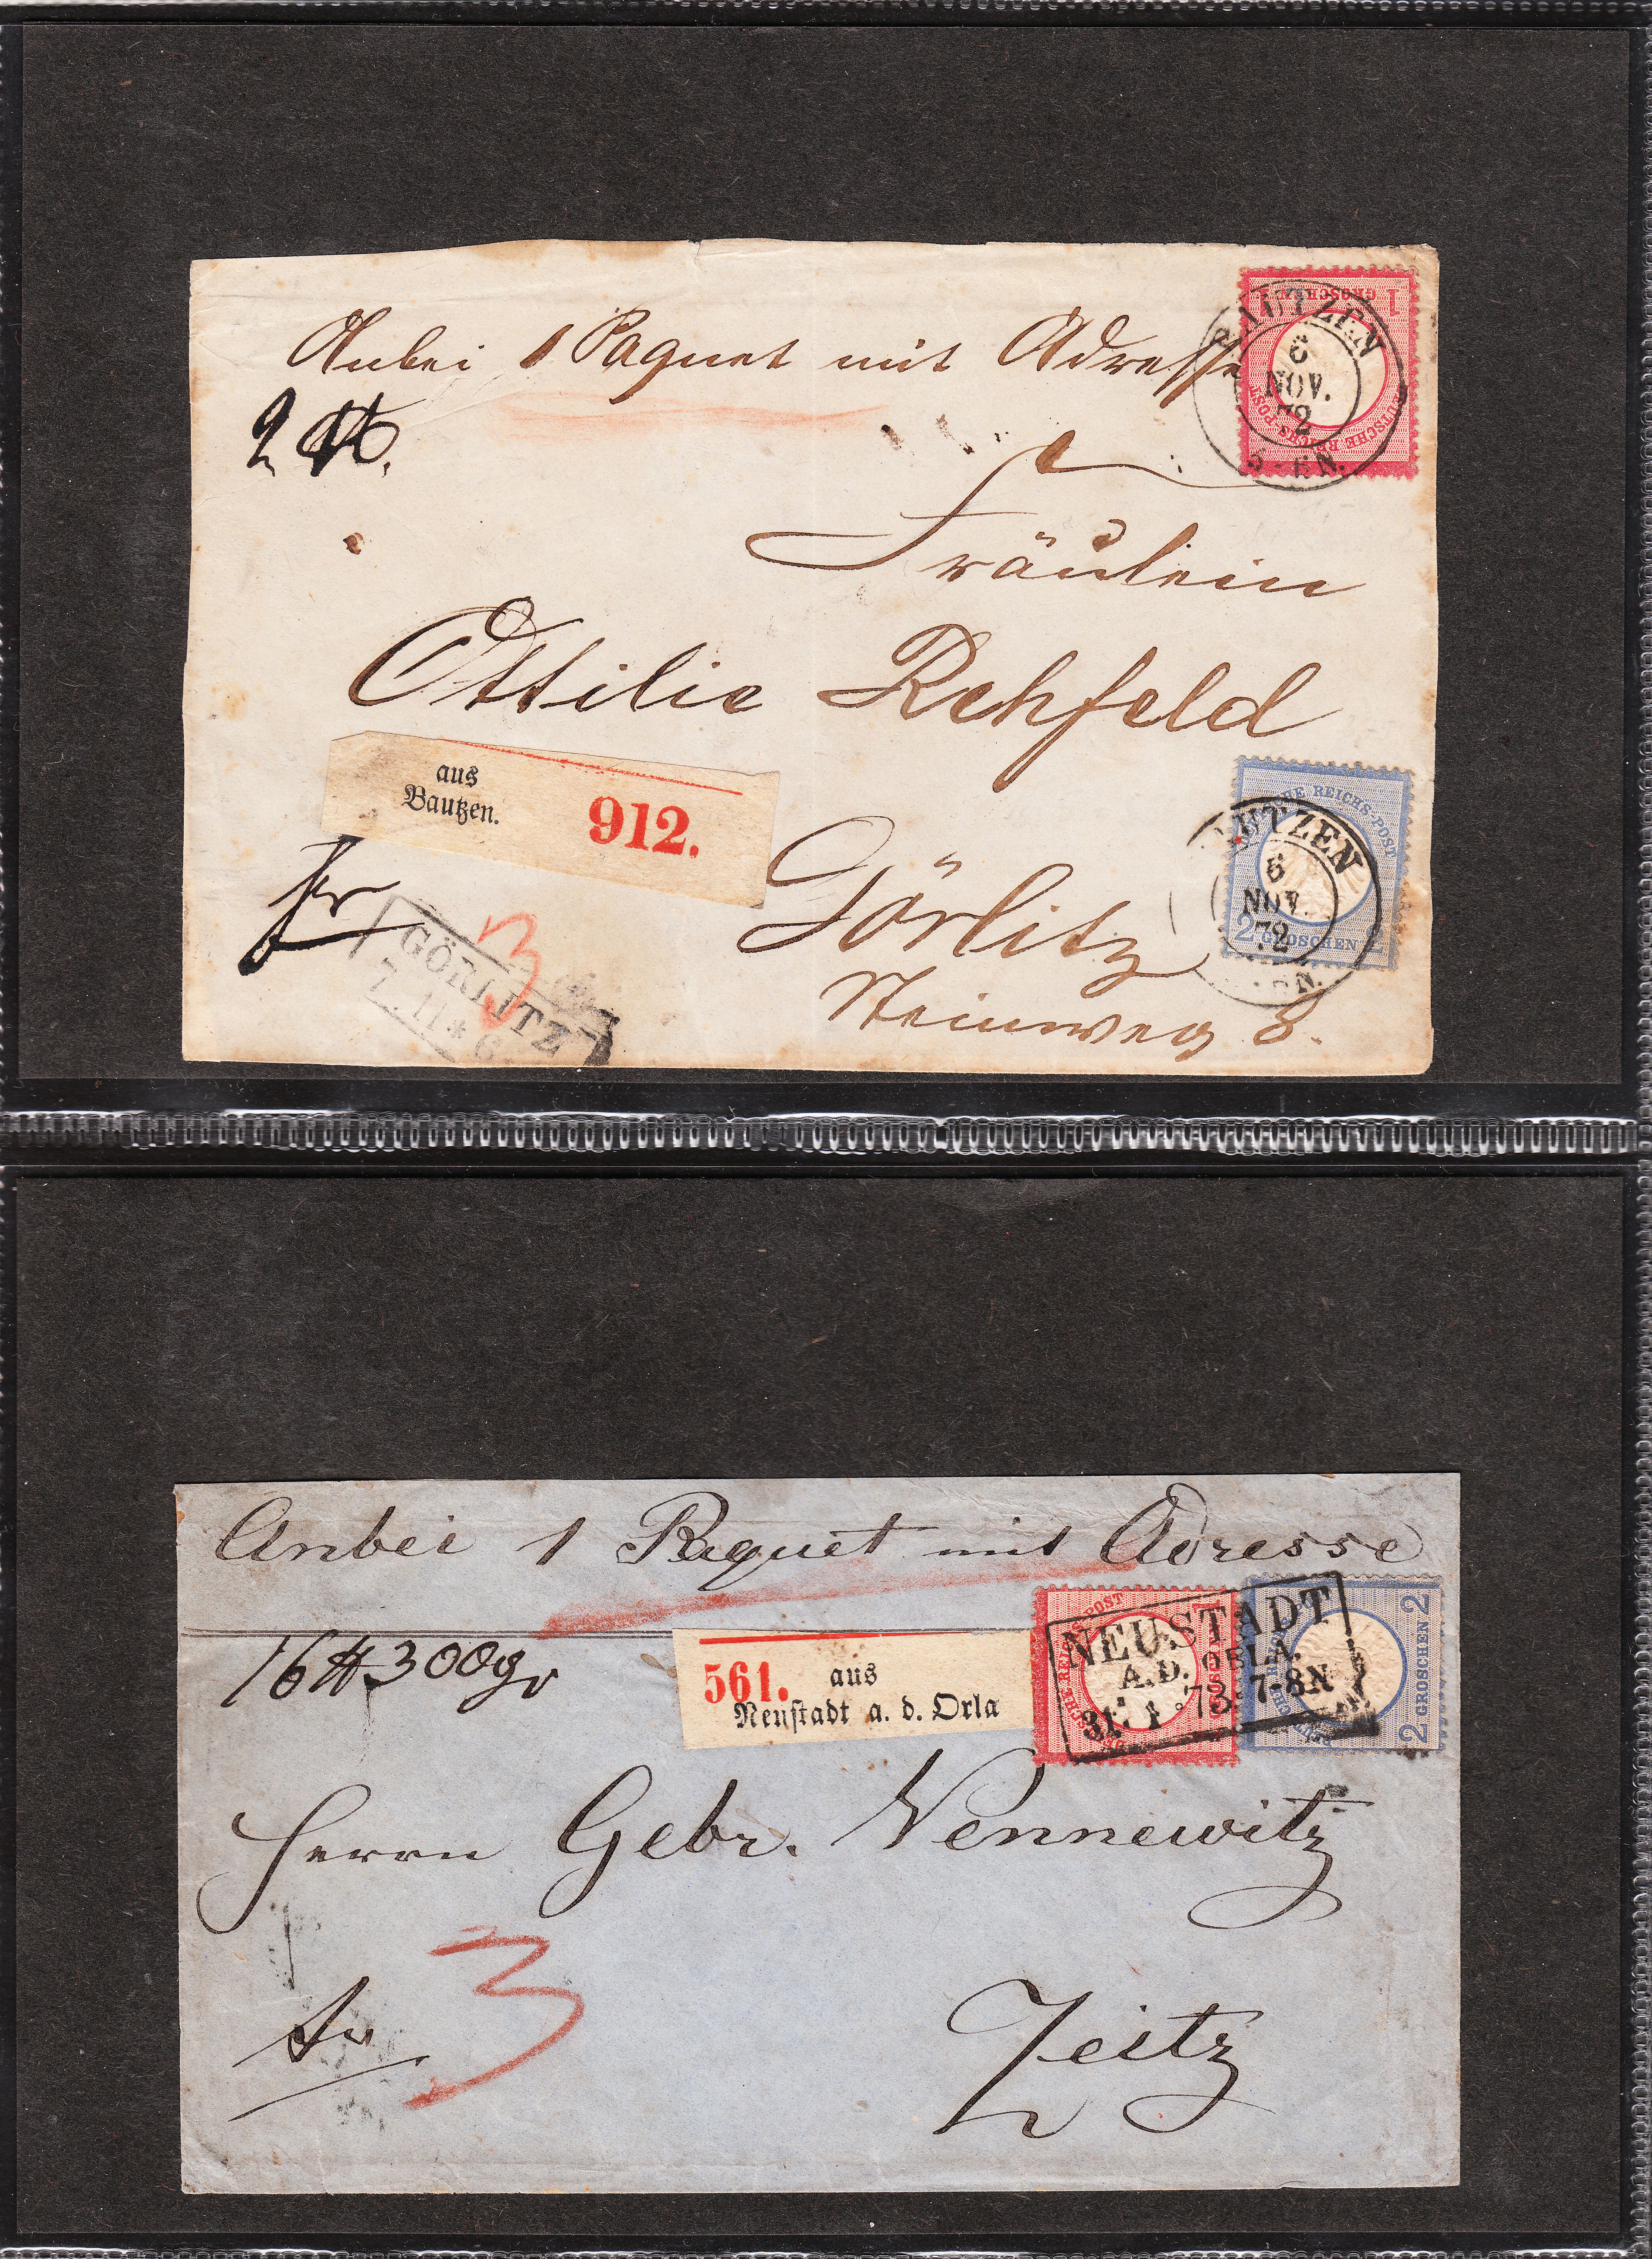 Anbei 1 Paquet mit Adresse
1 GROSCHEN 1
DEUTSCHE REICHS-POST
BAUTZEN
6
NOV.
72
5-6N.
2 ℔.
Fräulein
Ottilie Rehfeld
aus
Bautzen.
912.
DEUTSCHE REICHS-POST
2 GROSCHEN 2
BAUTZEN
6
NOV.
72
fr
GÖRLITZ
7 11 * 6
3
Görlitz
Steinweg 8.
Anbei 1 Paquet mit Adresse
16 ℔ 300gr
561. aus
Neustadt a. d. Orla
DEUTSCHE REICHS-POST
2 GROSCHEN 2
NEUSTADT
A.D. ORLA.
31 1 73 7-8N
Herrn Gebr. Nennewitz
fr
3
Zeitz